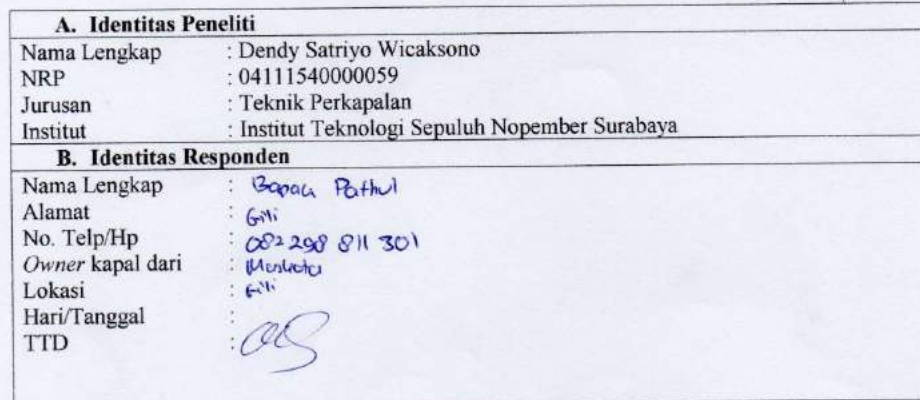 A. Identitas Peneliti
Nama Lengkap : Dendy Satriyo Wicaksono
NRP : 04111540000059
Jurusan : Teknik Perkapalan
Institut : Institut Teknologi Sepuluh Nopember Surabaya
B. Identitas Responden
Nama Lengkap : Bapak Pathul
Alamat : Gili
No. Telp/Hp : 082 298 811 301
Owner kapal dari :
Lokasi : Gili
Hari/Tanggal :
TTD :